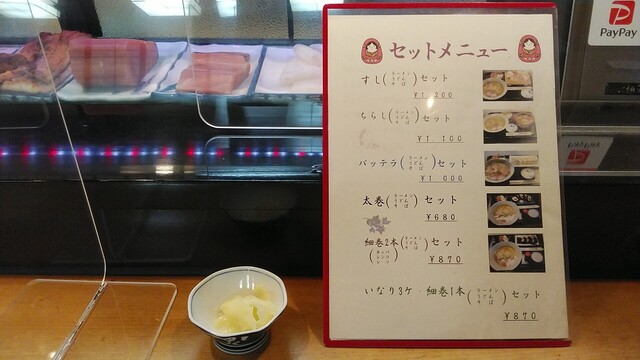 セットメニュー
すし(ラーメン うどん そば)セット
¥1,200
ちらし(ラーメン うどん そば)セット
¥1,100
バッテラ(ラーメン うどん そば)セット
¥1,000
太巻(ラーメン うどん そば)セット
¥680
細巻2本(ラーメン うどん そば)セット
¥870
いなり3ケ・細巻1本(ラーメン うどん そば)セット
¥870
PayPay
PayPay